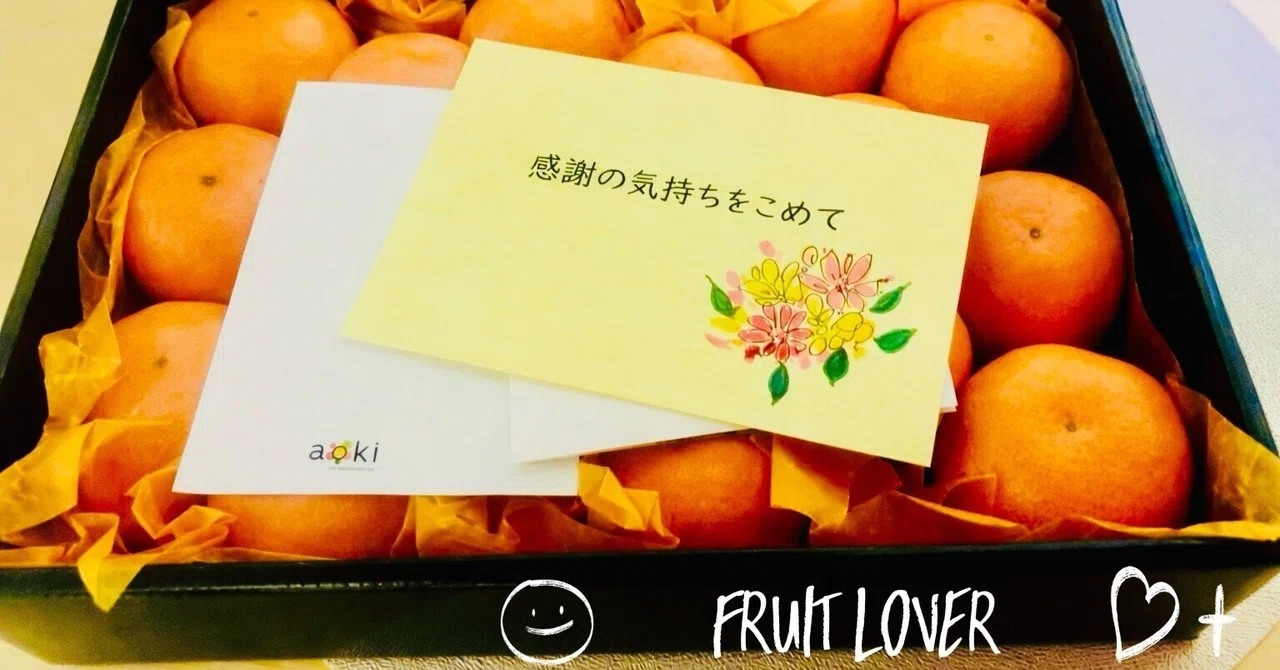 感謝の気持ちをこめて
aoki
FRUIT LOVER